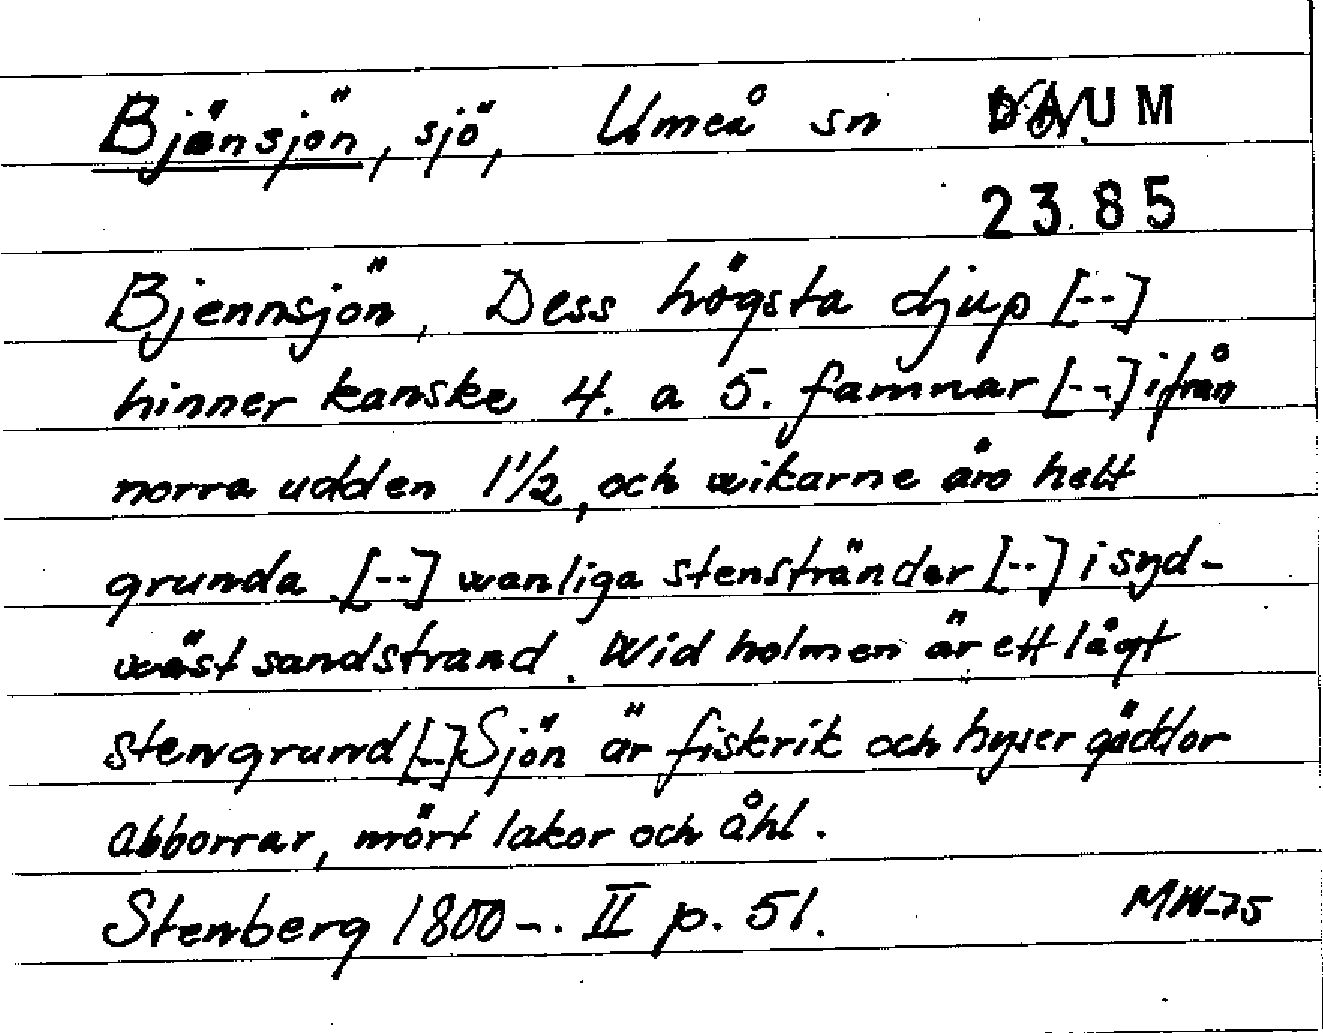 Bjänsjön, sjö, Umeå sn DAUM
2385
Bjennsjön, Dess högsta djup [--]
hinner kanske 4. a 5. famnar [--] ifrån
norra udden 1 1/2, och wikarne äro helt
grunda. [--] wanliga stenstränder [--] i syd-
wäst sandstrand. Wid holmen är ett lågt
stengrund [--] Sjön är fiskrik och hyser gäddor
abborrar, mört lakor och åhl.
Stenberg 1800-. II p. 51. MW-75